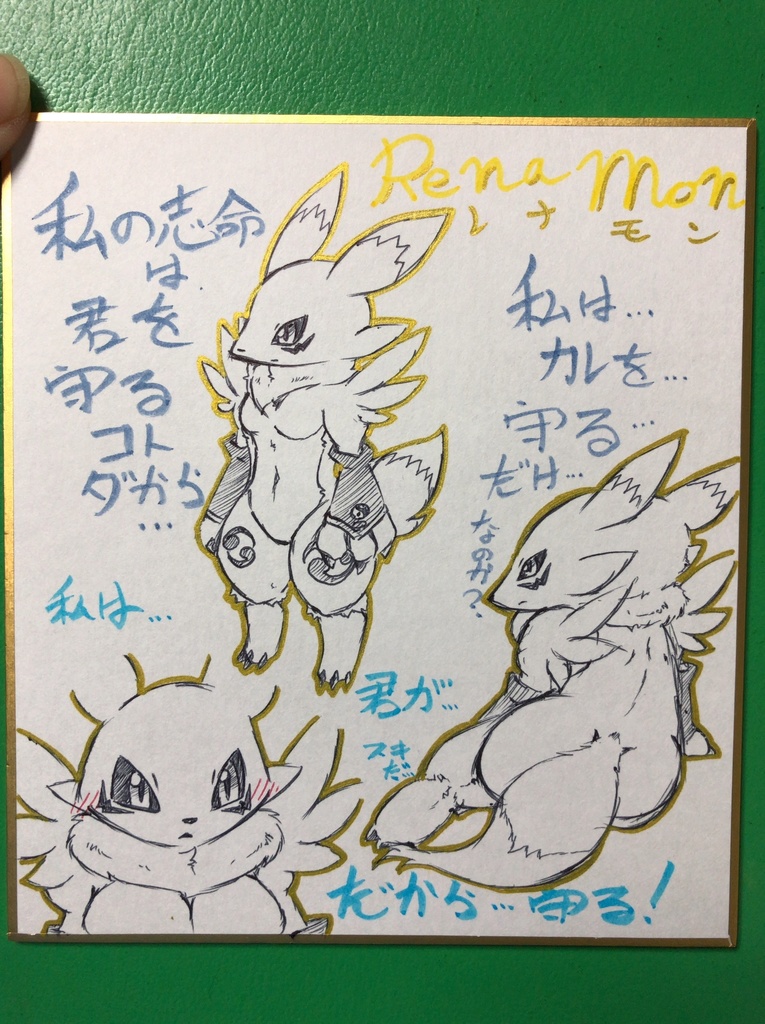 Rena Mon
レナモン
私の志命
は
君を
守る
コト
ダから
...
私は...
カレを...
守る...
だけ...
なのか?
私は...
君が...
スキ
だ...
だから...守る!